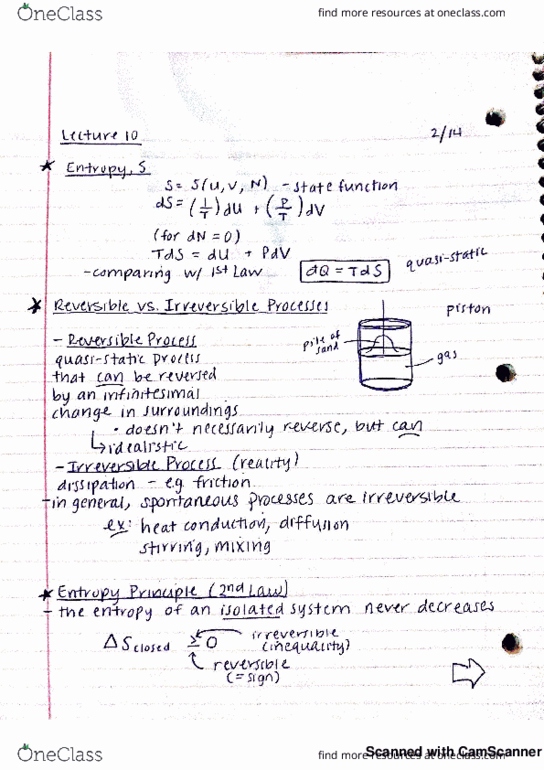 OneClass
find more resources at oneclass.com
Lecture 10
2/14
★ Entropy, S
S = S(U, V, N) - state function
dS = (1/T) dU + (P/T) dV
(for dN = 0)
TdS = dU + PdV
- comparing w/ 1st Law
đQ = TdS
quasi-static
★ Reversible vs. Irreversible Processes
piston
pile of
sand
gas
- Reversible Process
quasi-static process
that can be reversed
by an infinitesimal
change in surroundings
• doesn't necessarily reverse, but can
↳ idealistic
- Irreversible Process (reality)
dissipation - e.g. friction
- in general, spontaneous processes are irreversible
ex: heat conduction, diffusion
stirring, mixing
★ Entropy Principle (2nd Law)
- the entropy of an isolated system never decreases
ΔS closed ≥ 0
irreversible
(inequality)
reversible
(= sign)
OneClass
find more resources at oneclass.com
Scanned with CamScanner